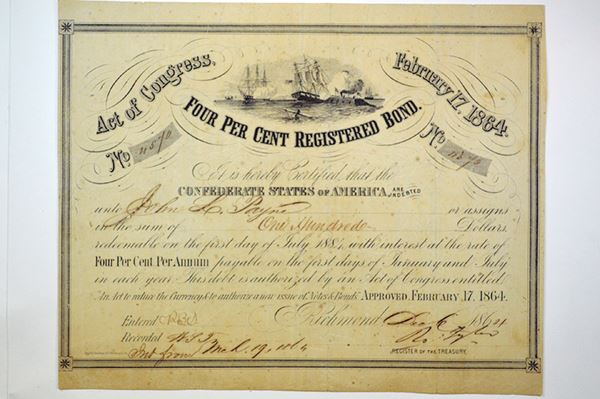 Act of Congress, February 17, 1864.
FOUR PER CENT REGISTERED BOND.
No No
It is hereby Certified, that the
CONFEDERATE STATES OF AMERICA, ARE INDEBTED
unto John L. Payne or assigns
in the sum of One Hundred Dollars,
redeemable on the first day of July 1884, with interest at the rate of
Four Per Cent. Per Annum payable on the first days of January and July
in each year. This debt is authorized by an Act of Congress entitled
"An Act to reduce the Currency & to authorize a new issue of Notes & Bonds." APPROVED, FEBRUARY 17, 1864.
Richmond Dec 6 1864
Entered
Recorded Ro. Tyler
Int from Mch 19, 1864 REGISTER OF THE TREASURY.